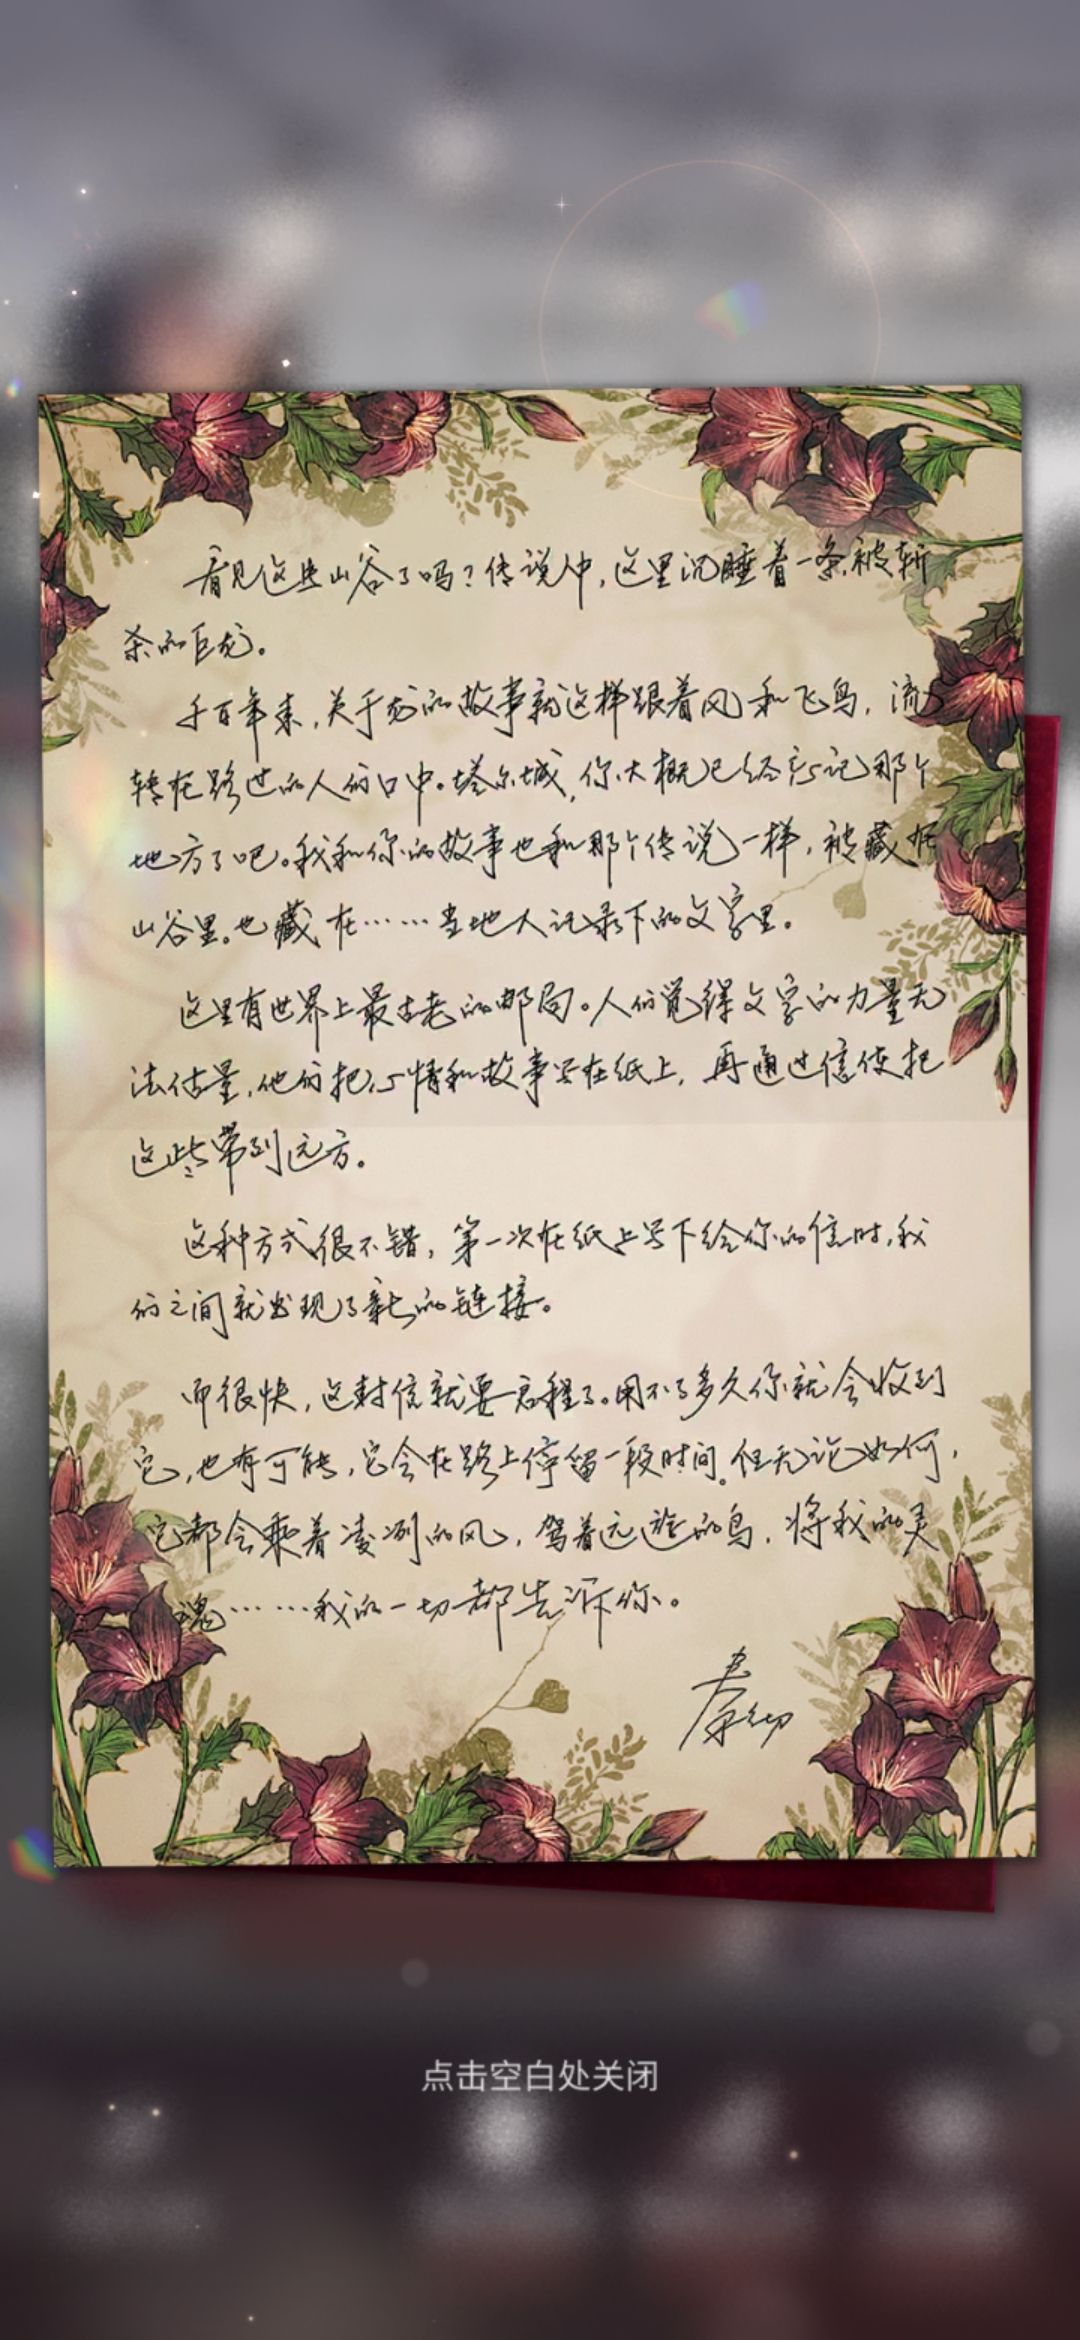 看见这些山谷了吗？传说中，这里沉睡着一条被斩
杀的巨龙。
千百年来，关于龙的故事就这样跟着风和飞鸟，流
转在路过的人们口中。塔尔城，你大概已经忘记那个
地方了吧。我和你的故事也和那个传说一样，被藏在
山谷里。也藏在……当地人记录下的文字里。
这里有世界上最古老的邮局。人们觉得文字的力量无
法估量，他们把心情和故事写在纸上，再通过信使把
这些带到远方。
这种方式很不错，第一次在纸上写下给你的信时，我
们之间就出现了新的链接。
而很快，这封信就要启程了。用不了多久你就会收到
它，也有可能，它会在路上停留一段时间。但无论如何，
它都会乘着凌冽的风，驾着远遊的鸟，将我的灵
魂……我的一切都告诉你。
秦彻
点击空白处关闭